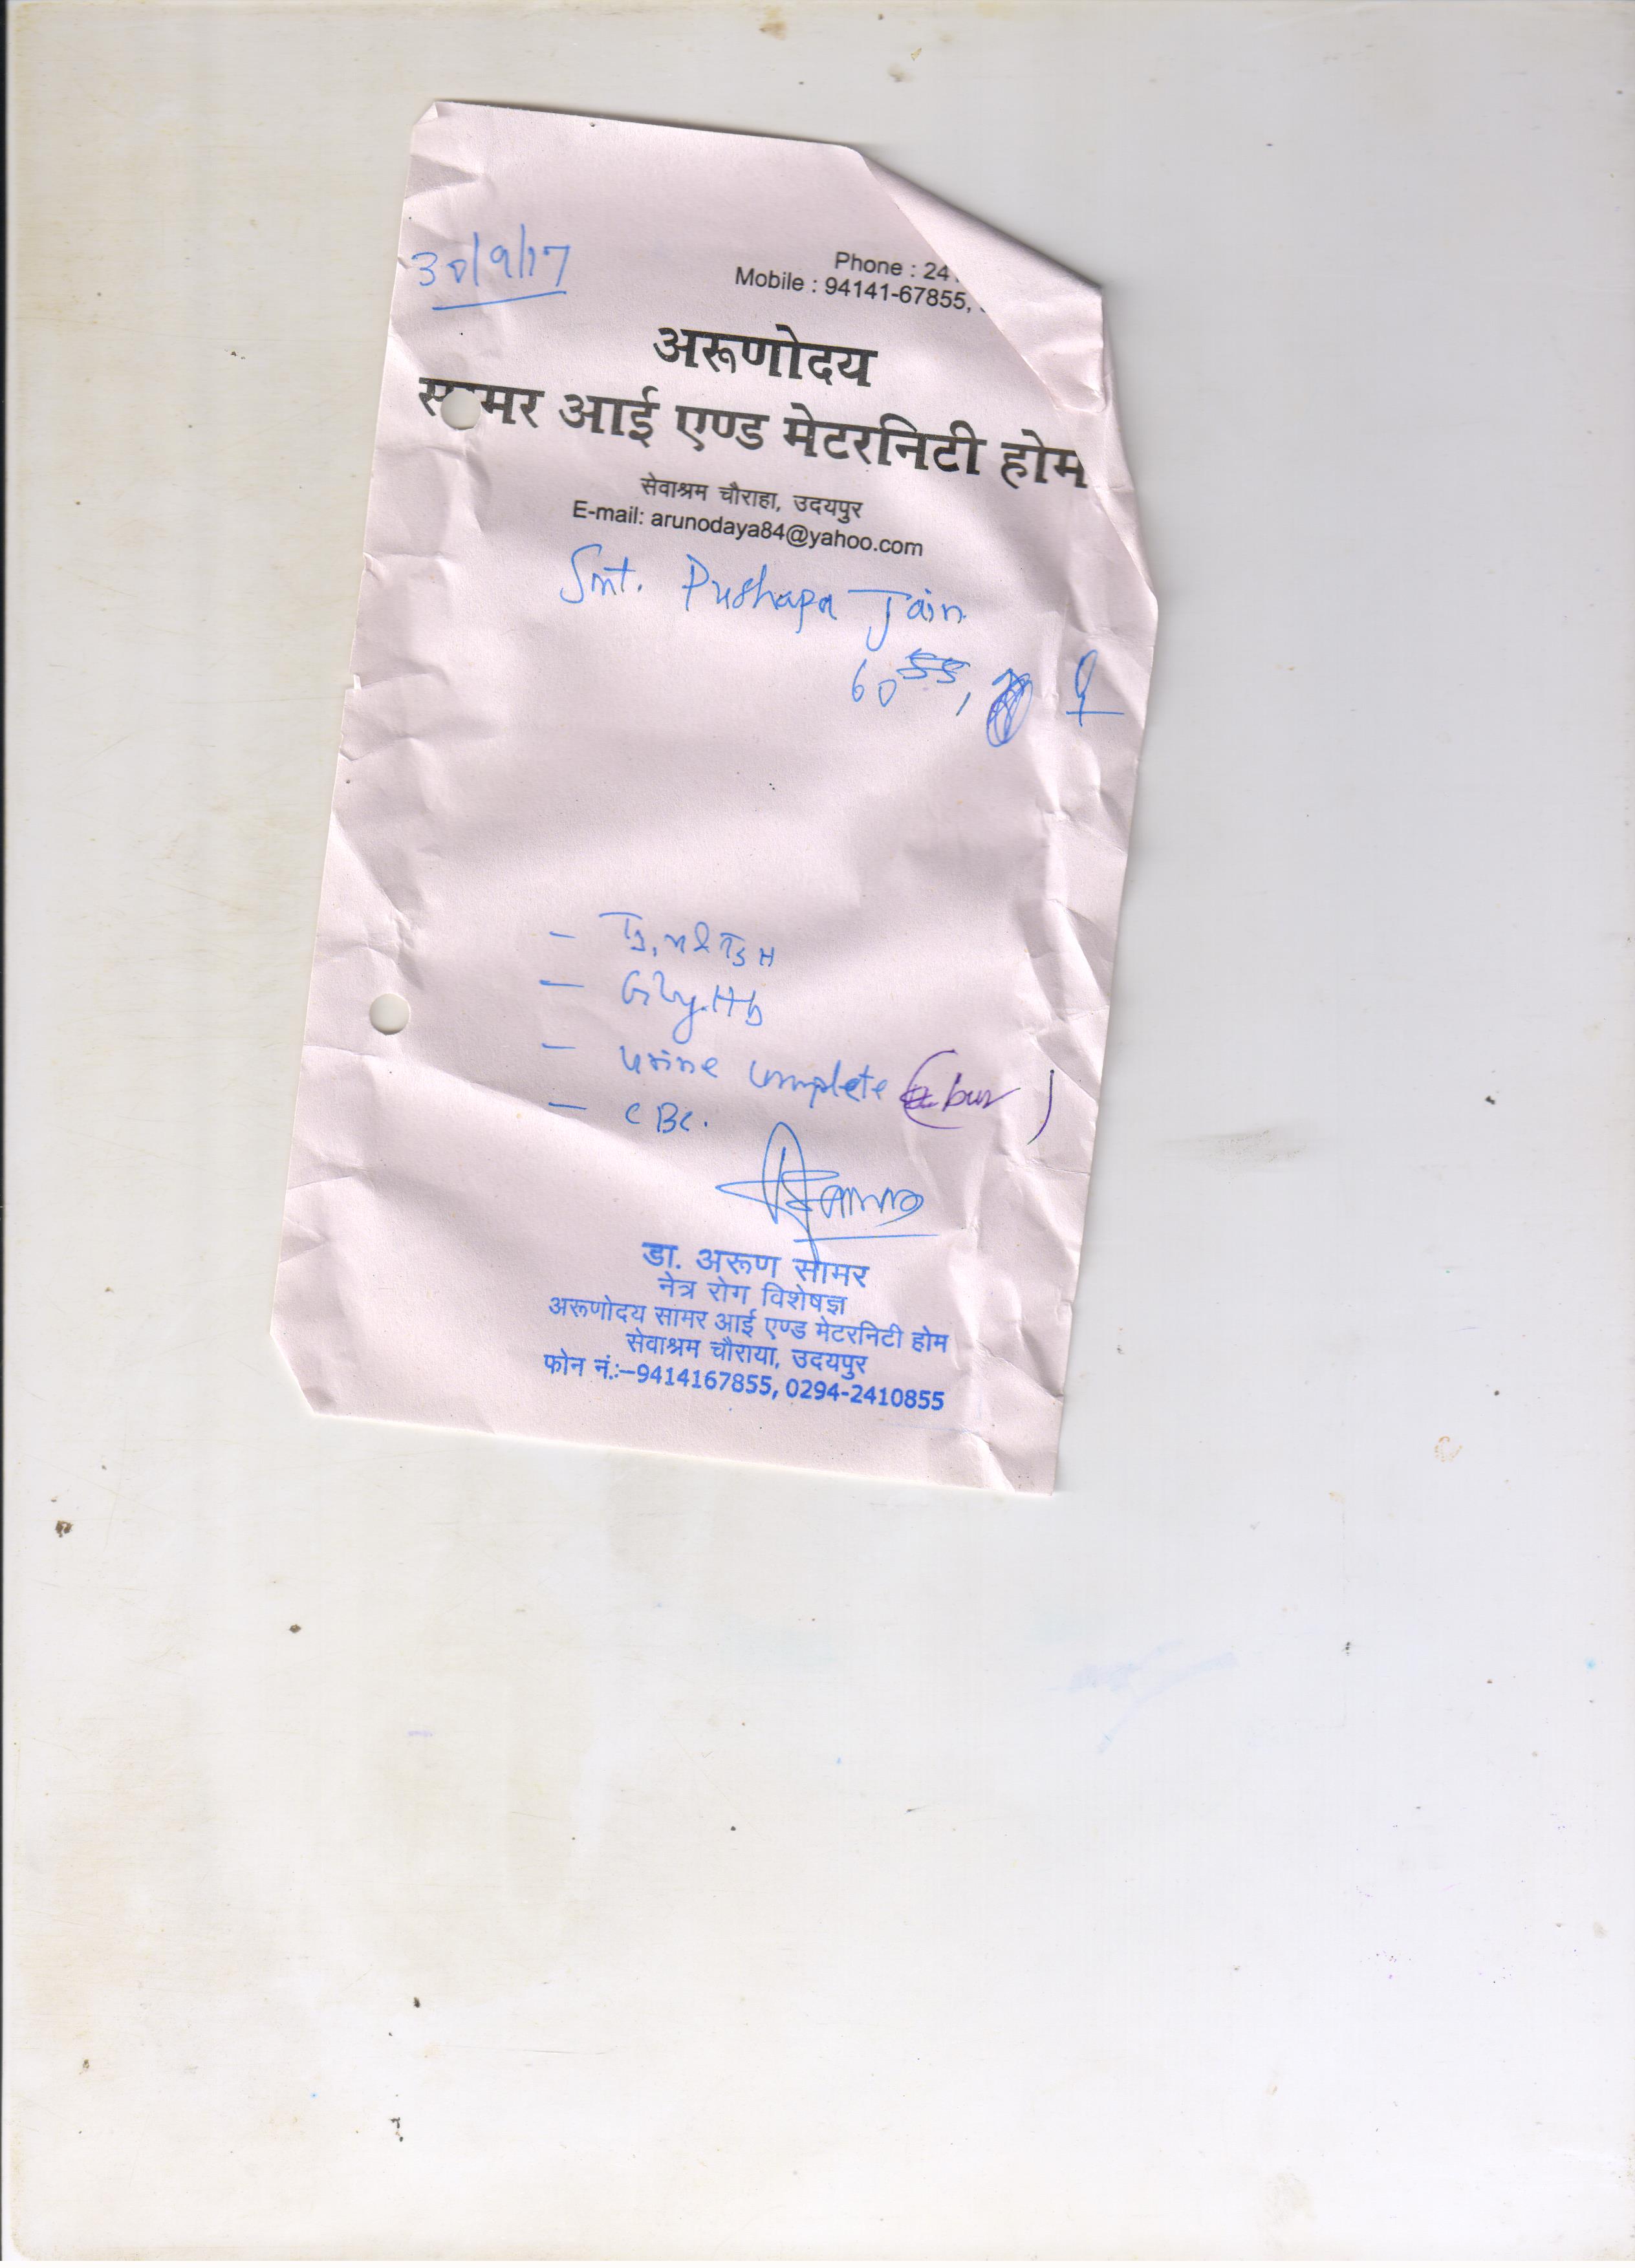 30/9/17
Phone : 24
Mobile : 94141-67855,
अरूणोदय
सामर आई एण्ड मेटरनिटी होम
सेवाश्रम चौराहा, उदयपुर
E-mail: arunodaya84@yahoo.com
Smt. Pushapa Jain
60 ♀
- T3, T4 & TSH
- Gly.Hb
- Urine complete
- CBC.
डा. अरूण सामर
नेत्र रोग विशेषज्ञ
अरूणोदय सामर आई एण्ड मेटरनिटी होम
सेवाश्रम चौराया, उदयपुर
फोन नं.:–9414167855, 0294-2410855